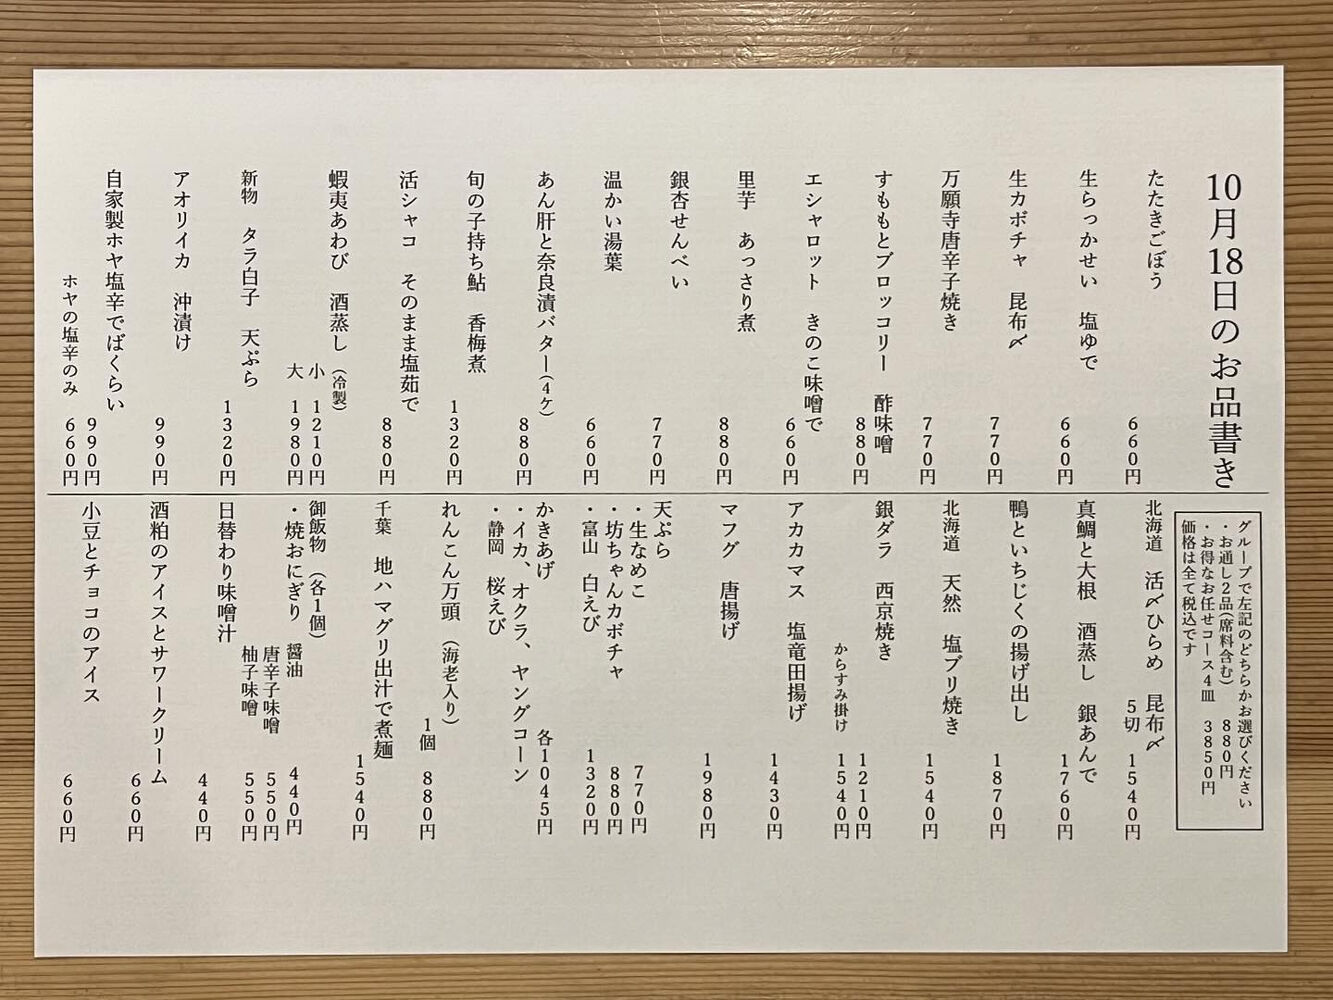 10月18日のお品書き
たたきごぼう
660円
生らっかせい 塩ゆで
660円
生カボチャ 昆布〆
770円
万願寺唐辛子焼き
770円
すももとブロッコリー 酢味噌
880円
エシャロット きのこ味噌で
660円
里芋 あっさり煮
880円
銀杏せんべい
770円
温かい湯葉
660円
あん肝と奈良漬バター(4ケ)
880円
旬の子持ち鮎 香梅煮
1320円
活シャコ そのまま塩茹で
880円
蝦夷あわび 酒蒸し(冷製)
小 1210円
大 1980円
新物 タラ白子 天ぷら
1320円
アオリイカ 沖漬け
990円
自家製ホヤ塩辛でばくらい
990円
ホヤの塩辛のみ 660円
グループで左記のどちらかお選びください
・お通し2品(席料含む) 880円
・お得なお任せコース4皿 3850円
価格は全て税込です
北海道 活〆ひらめ 昆布〆
5切 1540円
真鯛と大根 酒蒸し 銀あんで
1760円
鴨といちじくの揚げ出し
1870円
北海道 天然 塩ブリ焼き
1540円
銀ダラ 西京焼き
1210円
からすみ掛け 1540円
アカカマス 塩竜田揚げ
1430円
マフグ 唐揚げ
1980円
天ぷら
・生なめこ 770円
・坊ちゃんカボチャ 880円
・富山 白えび 1320円
かきあげ 各1045円
・イカ、オクラ、ヤングコーン
・静岡 桜えび
れんこん万頭 (海老入り)
1個 880円
千葉 地ハマグリ出汁で煮麺
1540円
御飯物 (各1個)
・焼おにぎり 醤油 440円
唐辛子味噌 550円
柚子味噌 550円
日替わり味噌汁
440円
酒粕のアイスとサワークリーム
660円
小豆とチョコのアイス
660円